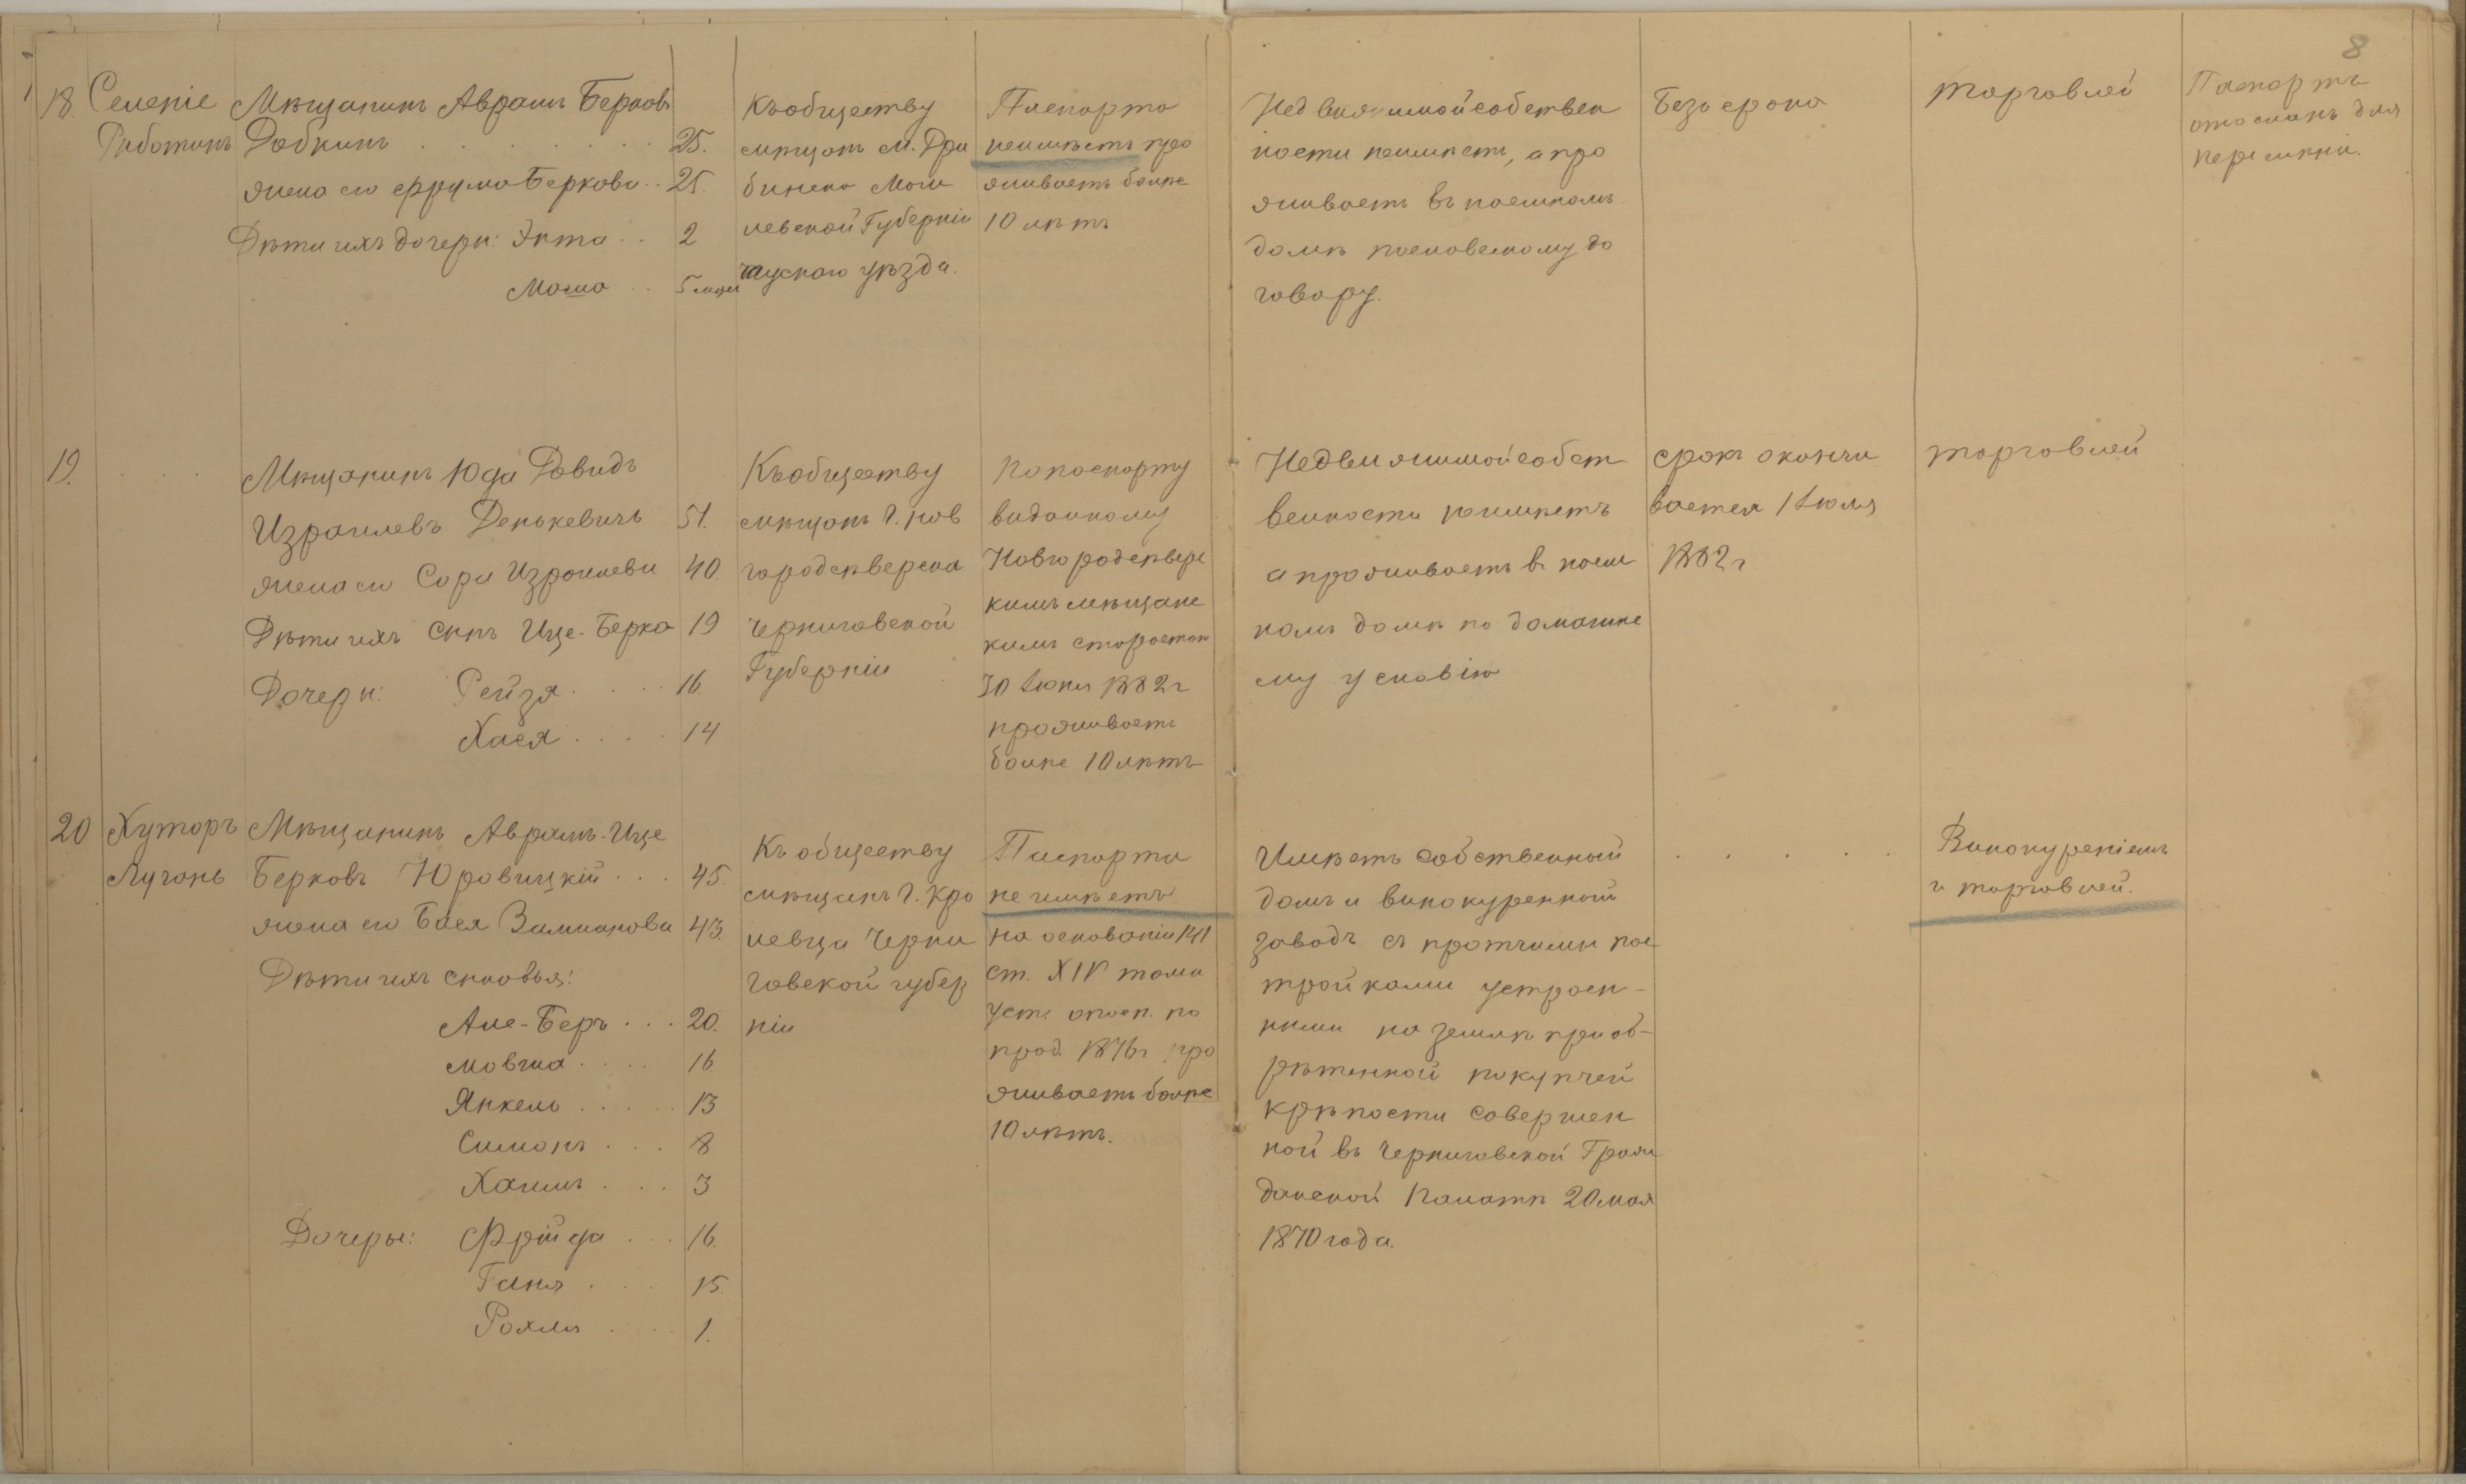 8
18. Селеніе
Работинъ
Мѣщанинъ Аврамъ Берковъ
Добкинъ . . . . . . . 25.
жена его Фрума Беркова . . 25.
Дѣти ихъ дочери:Этта . . 2
Маша . . 5 мѣся
Къ обществу
мѣщанъ м. Дри
бинска Моги
левской Губерніи
чаускаго уѣзда.
Паспорта
неимѣетъ про
живаетъ болѣе
10 лѣтъ
Недвижимой собствен
ности неимѣетъ, а про
живаетъ въ наемномъ
домѣ насловесному до
говору.
Безъ срока
торговлей
Паспортъ
отосланъ для
перемѣни.
19. . . .
Мѣщанинъ Юда Довидъ
Израилевъ Денькевичъ 51.
жена его Сора Израилева 40.
Дѣти ихъ сынъ Ице-Берка 19
Дочери: Рейзя . . . . 16.
Хася . . . . 14
Къ обществу
мѣщанъ г. нов
городсѣверска
Черниговской
Губерніи
Попаспорту
виданному
Новгородсѣверс
кимъ мѣщанс
кимъ старостою
30 Іюня 1882 г
проживаетъ
болѣе 10 лѣтъ
Недвижимой собст
венности неимѣетъ
а проживаетъ в наем
номъ домѣ по домашне
му условію
срокъ оканчи
вается 1 Іюля
1882 г.
торговлей
20 Хуторъ
Лугань
Мѣщанинъ Аврамъ-Ице
Берковъ Юровицкій . . . 45.
жена его Бася Залманова 43.
Дѣти ихъ сыновья:
Але-Беръ . . . 20.
Мовша . . . . 16
Янкель . . . . . 13
Симонъ . . . 8
Хаимъ . . . 3
Дочеры: Фрейда . . . 16.
Ганя . . . 15.
Рохля . . . 1.
Къ обществу
мѣщанъ г. Кро
левца Черни
говской губер
ніи
Паспорта
не имѣетъ
на основаніи 141
ст. XIV тома
уст. опасп. по
прод. 1876 г про
живаетъ болѣе
10 лѣтъ.
Имѣетъ собственный
домъ и винокуренный
заводъ съ протчими пос
тройками устроен-
ними на землѣ приоб-
рѣтенной покупчей
крѣпости совершен
ной въ Черниговской Граж
данской Палатѣ 20 мая
1870 года.
. . . . .
Винокуреніемъ
и торговлей.